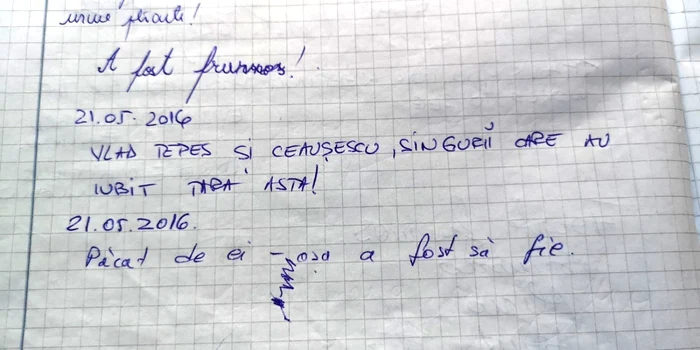 A fost frumos!
21.05.2016
VLAD TEPES SI CEAUȘESCU, SINGURII CARE AU
IUBIT TARA ASTA!
21.05.2016.
Păcat de ei - asa a fost să fie.